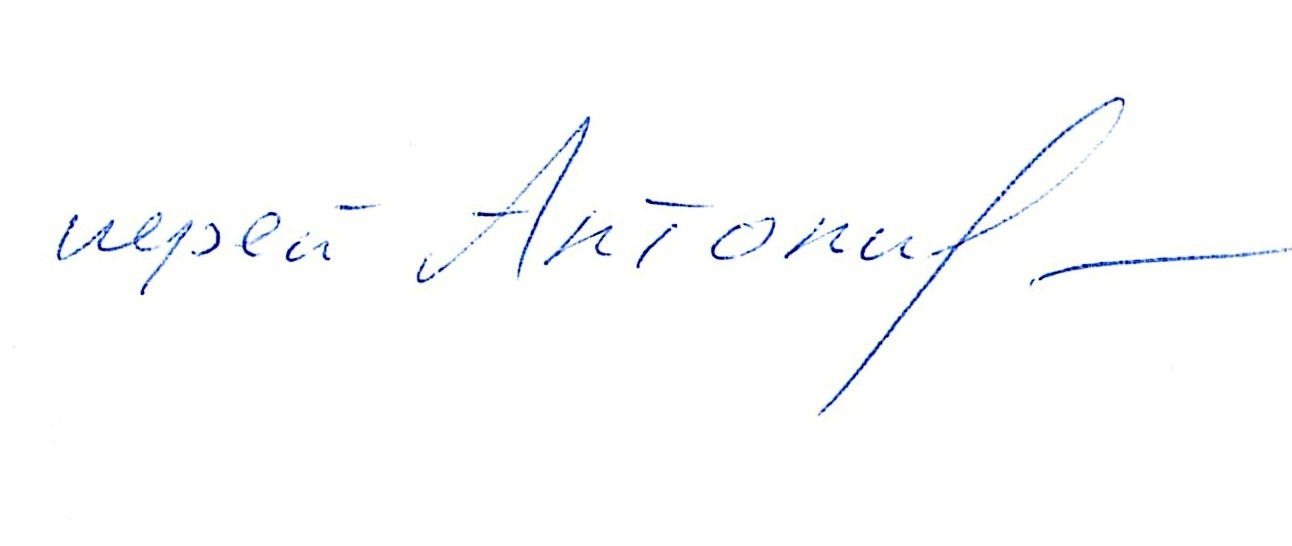 иерей Антоний